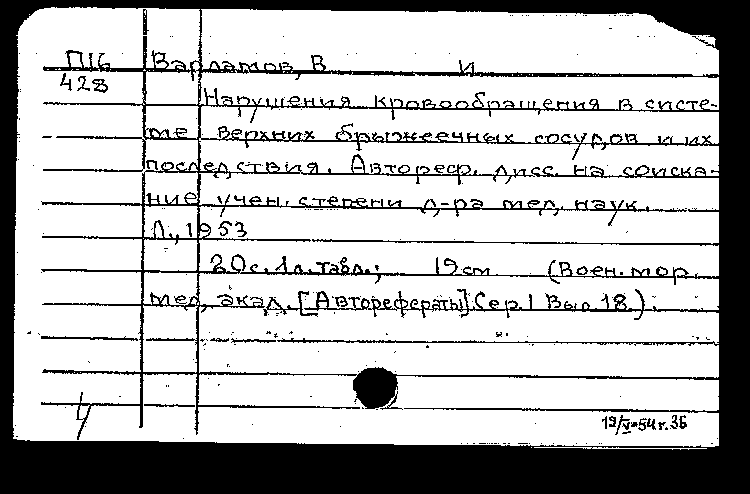 П16 Варламов, В И
428
Нарушения кровообращения в систе-
ме верхних брыжеечных сосудов и их
последствия. Автореф. дисс. на соиска-
ние учен. степени д-ра мед. наук.
Л., 1953
20с. 1л. табл.; 19см (Воен. мор.
мед. акад. [Авторефераты]. Сер. 1 Вып. 18).
19/V-54г. 36